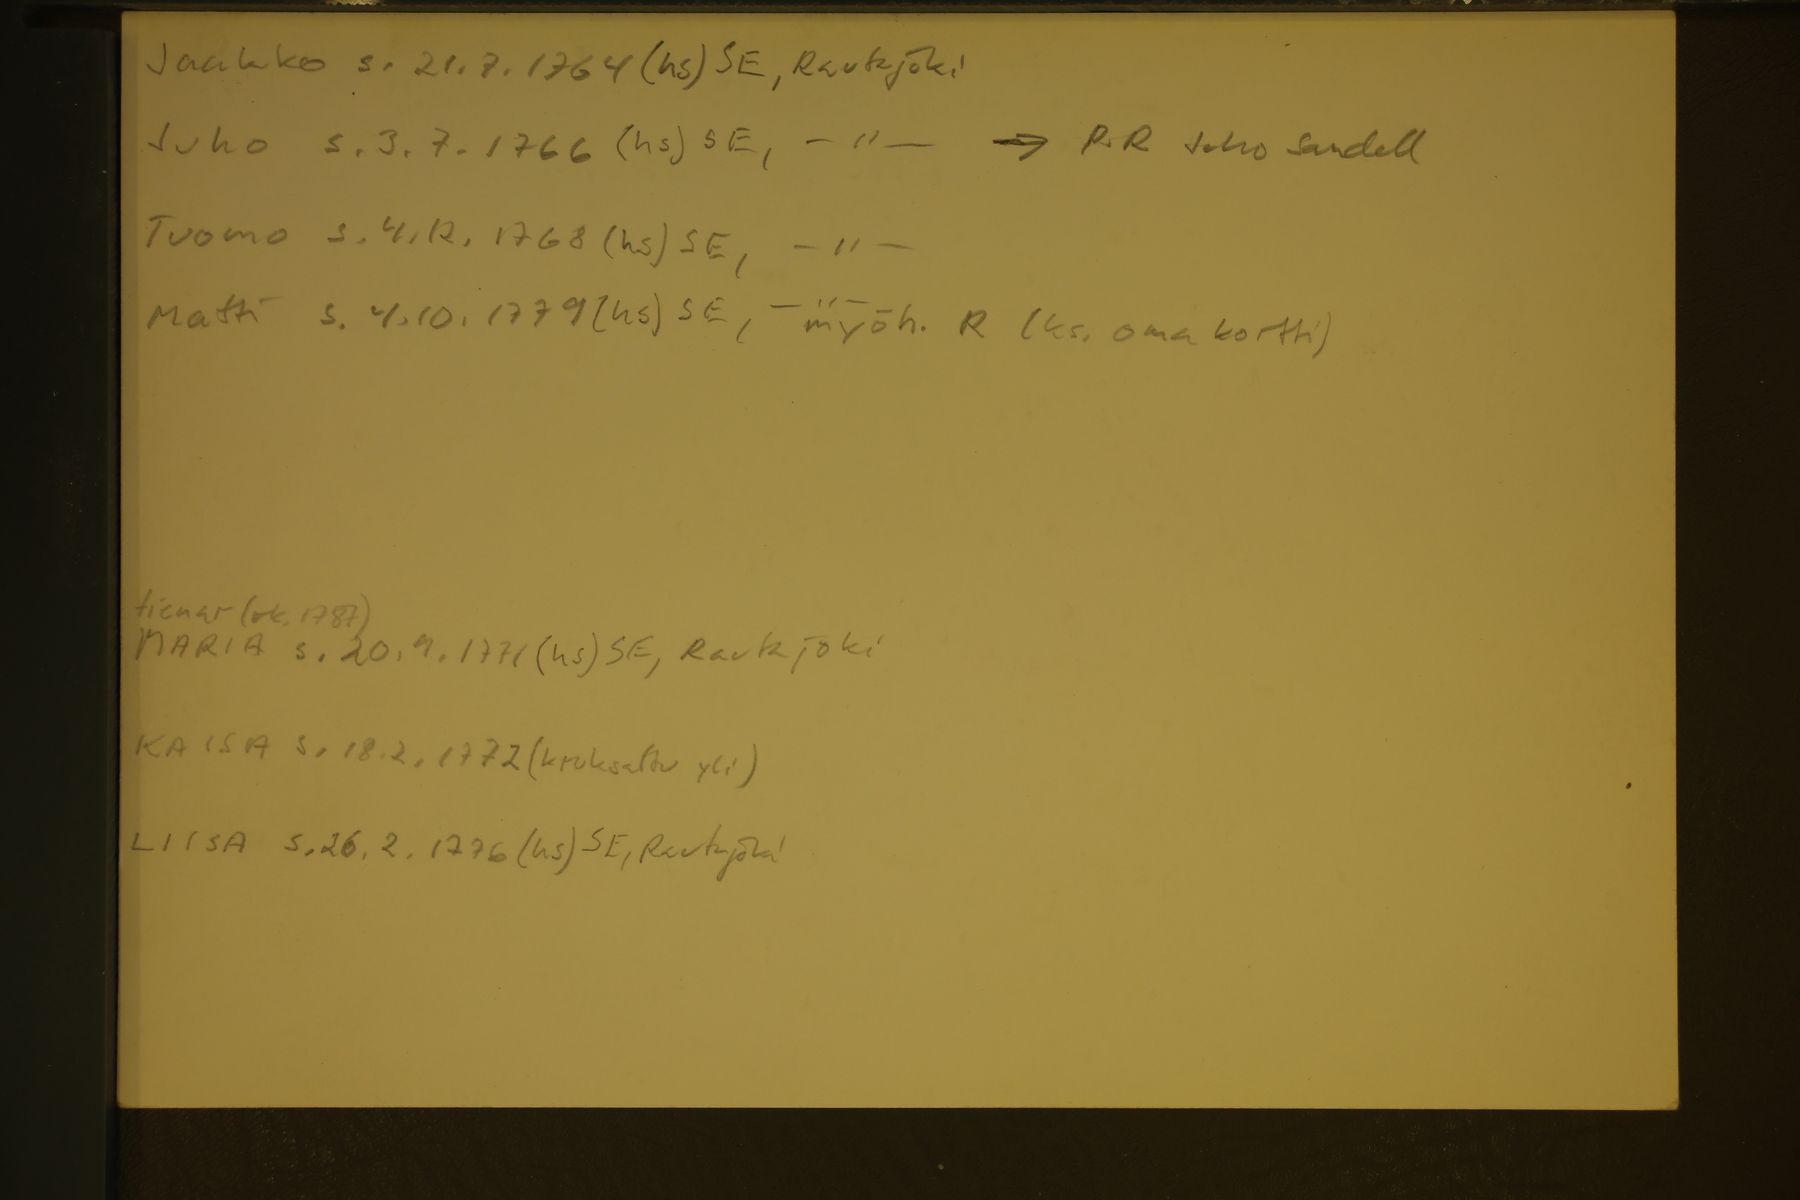 Jaakko s. 21.7.1764 (hs) SE, Rautajoki
Juho s. 3.7.1766 (hs) SE, -"- → RR Juho Sandell
Tuomo s. 4.12.1768 (hs) SE, -"-
Matti s. 4.10.1779 (hs) SE, -"- myöh. R (ks. oma kortti)
(rk. 1787)
MARIA s. 20.9.1771 (hs) SE, Rautajoki
KAISA s. 18.2.1772 (kruksattu yli)
LIISA s. 26.2.1776 (hs) SE, Rautajoki